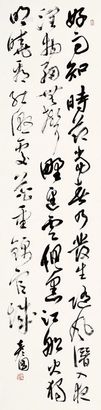 好雨知時節當春乃發生隨風潛入夜
潤物細無聲野徑雲俱黑江船火獨
明曉看紅濕處花重錦官城